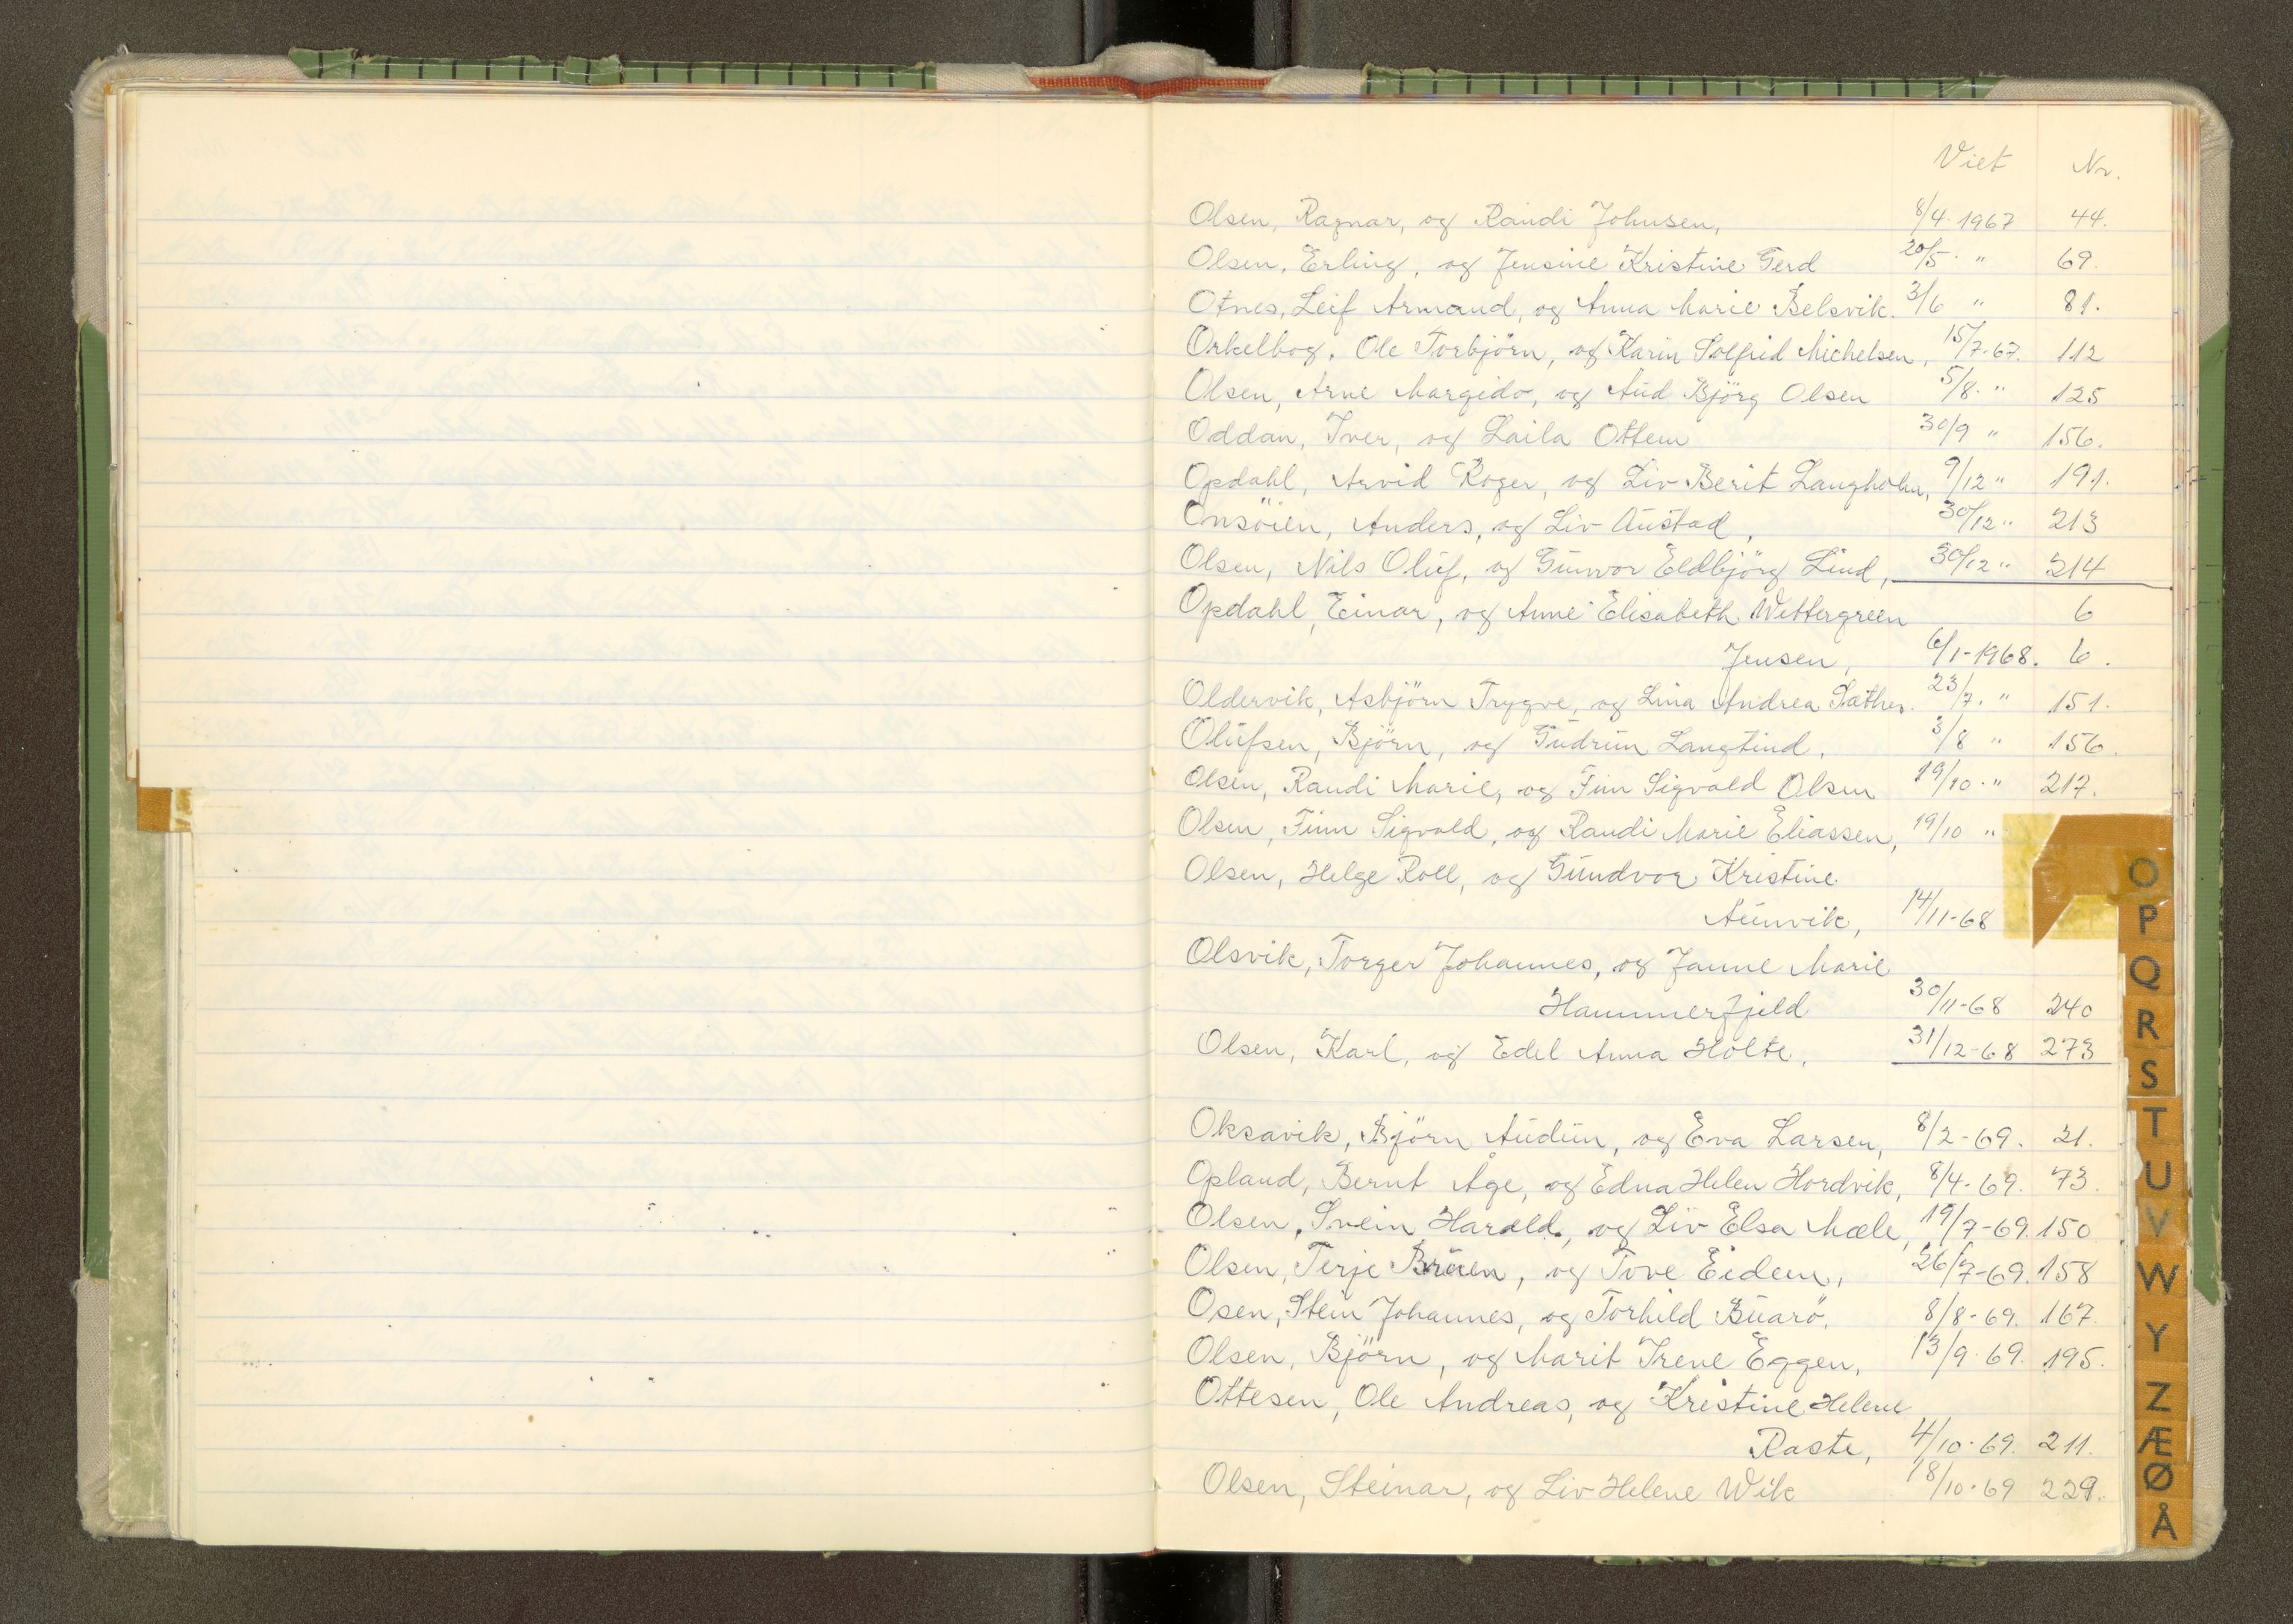 Viet Nr.
Olsen, Ragnar, og Randi Johnsen, 8/4-1967 44.
Olsen, Erling, og Jensine Kristine Gerd 20/5. " 69.
Otnes, Leif Armand, og Anna Marie Belsvik. 3/6 " 81.
Orkelbog, Ole Torbjörn, og Karin Solfrid Michelsen, 15/7-67. 112
Olsen, Arne Margido, og Aud Björg Olsen 5/8. " 125
Oddan, Iver, og Laila Ottem 30/9 " 156.
Opdahl, Arvid Roger, og Liv Berit Langholm, 9/12 " 191.
Onsöien, Anders, og Liv Austad, 30/12 " 213
Olsen, Nils Oluf, og Gunvor Eldbjörg Lind, 30/12 " 214
Opdahl, Einar, og Anne Elisabeth Wettergreen 6
Jensen, 6/1-1968. 6.
Oldervik, Asbjörn Trygve, og Lina Andrea Sæther. 23/7. " 151.
Olufsen, Björn, og Gudrun Langtind, 3/8 " 156.
Olsen, Randi Marie, og Finn Sigvald Olsen 19/10. " 217.
Olsen, Finn Sigvald, og Randi Marie Eliassen, 19/10 "
Olsen, Helge Roll, og Gundvor Kristine
Aunvik, 14/11-68
Olsvik, Torger Johannes, og Janne Marie
Hammerfjeld 30/11-68 240
Olsen, Karl, og Edel Anna Holte, 31/12-68 273
Oksavik, Björn Audun, og Eva Larsen, 8/2-69. 21.
Opland, Bernt Åge, og Edna Helen Hordvik, 8/4-69. 73.
Olsen, Svein Harald, og Liv Elsa Mæle, 19/7-69. 150
Olsen, Terje Bruen, og Tove Eidem, 26/7-69. 158
Osen, Stein Johannes, og Torhild Buarö, 8/8-69. 167.
Olsen, Björn, og Marit Irene Eggen, 13/9-69. 195.
Ottesen, Ole Andreas, og Kristine Helene
Raste, 4/10-69. 211.
Olsen, Steinar, og Liv Helene Wik 18/10-69 229.
O
P
Q
R
S
T
U
V
W
Y
Z
Æ
Ø
Å